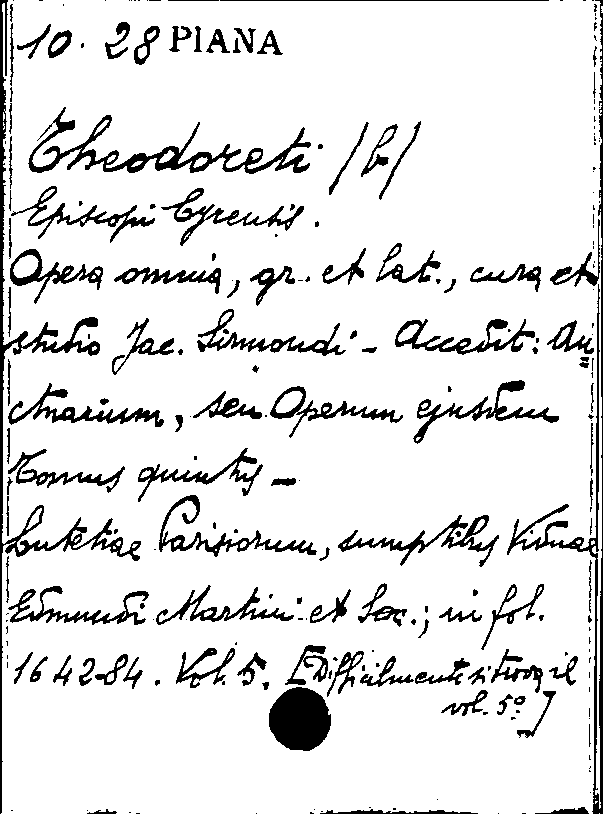 10. 28 PIANA
Theodoreti /b/
Episcopi Cyrensis.
Opera omnia, gr. et lat., cura et
studio Jac. Sirmondi - Accedit: Au
ctuarium, seu Operum ejusdem
Tomus quintus -
Lutetiae Parisiorum, sumptibus Viduae
Edmundi Martini et Soc.; in fol.
1642-84. Vol. 5. [Difficilmente si trova il
vol. 5º]